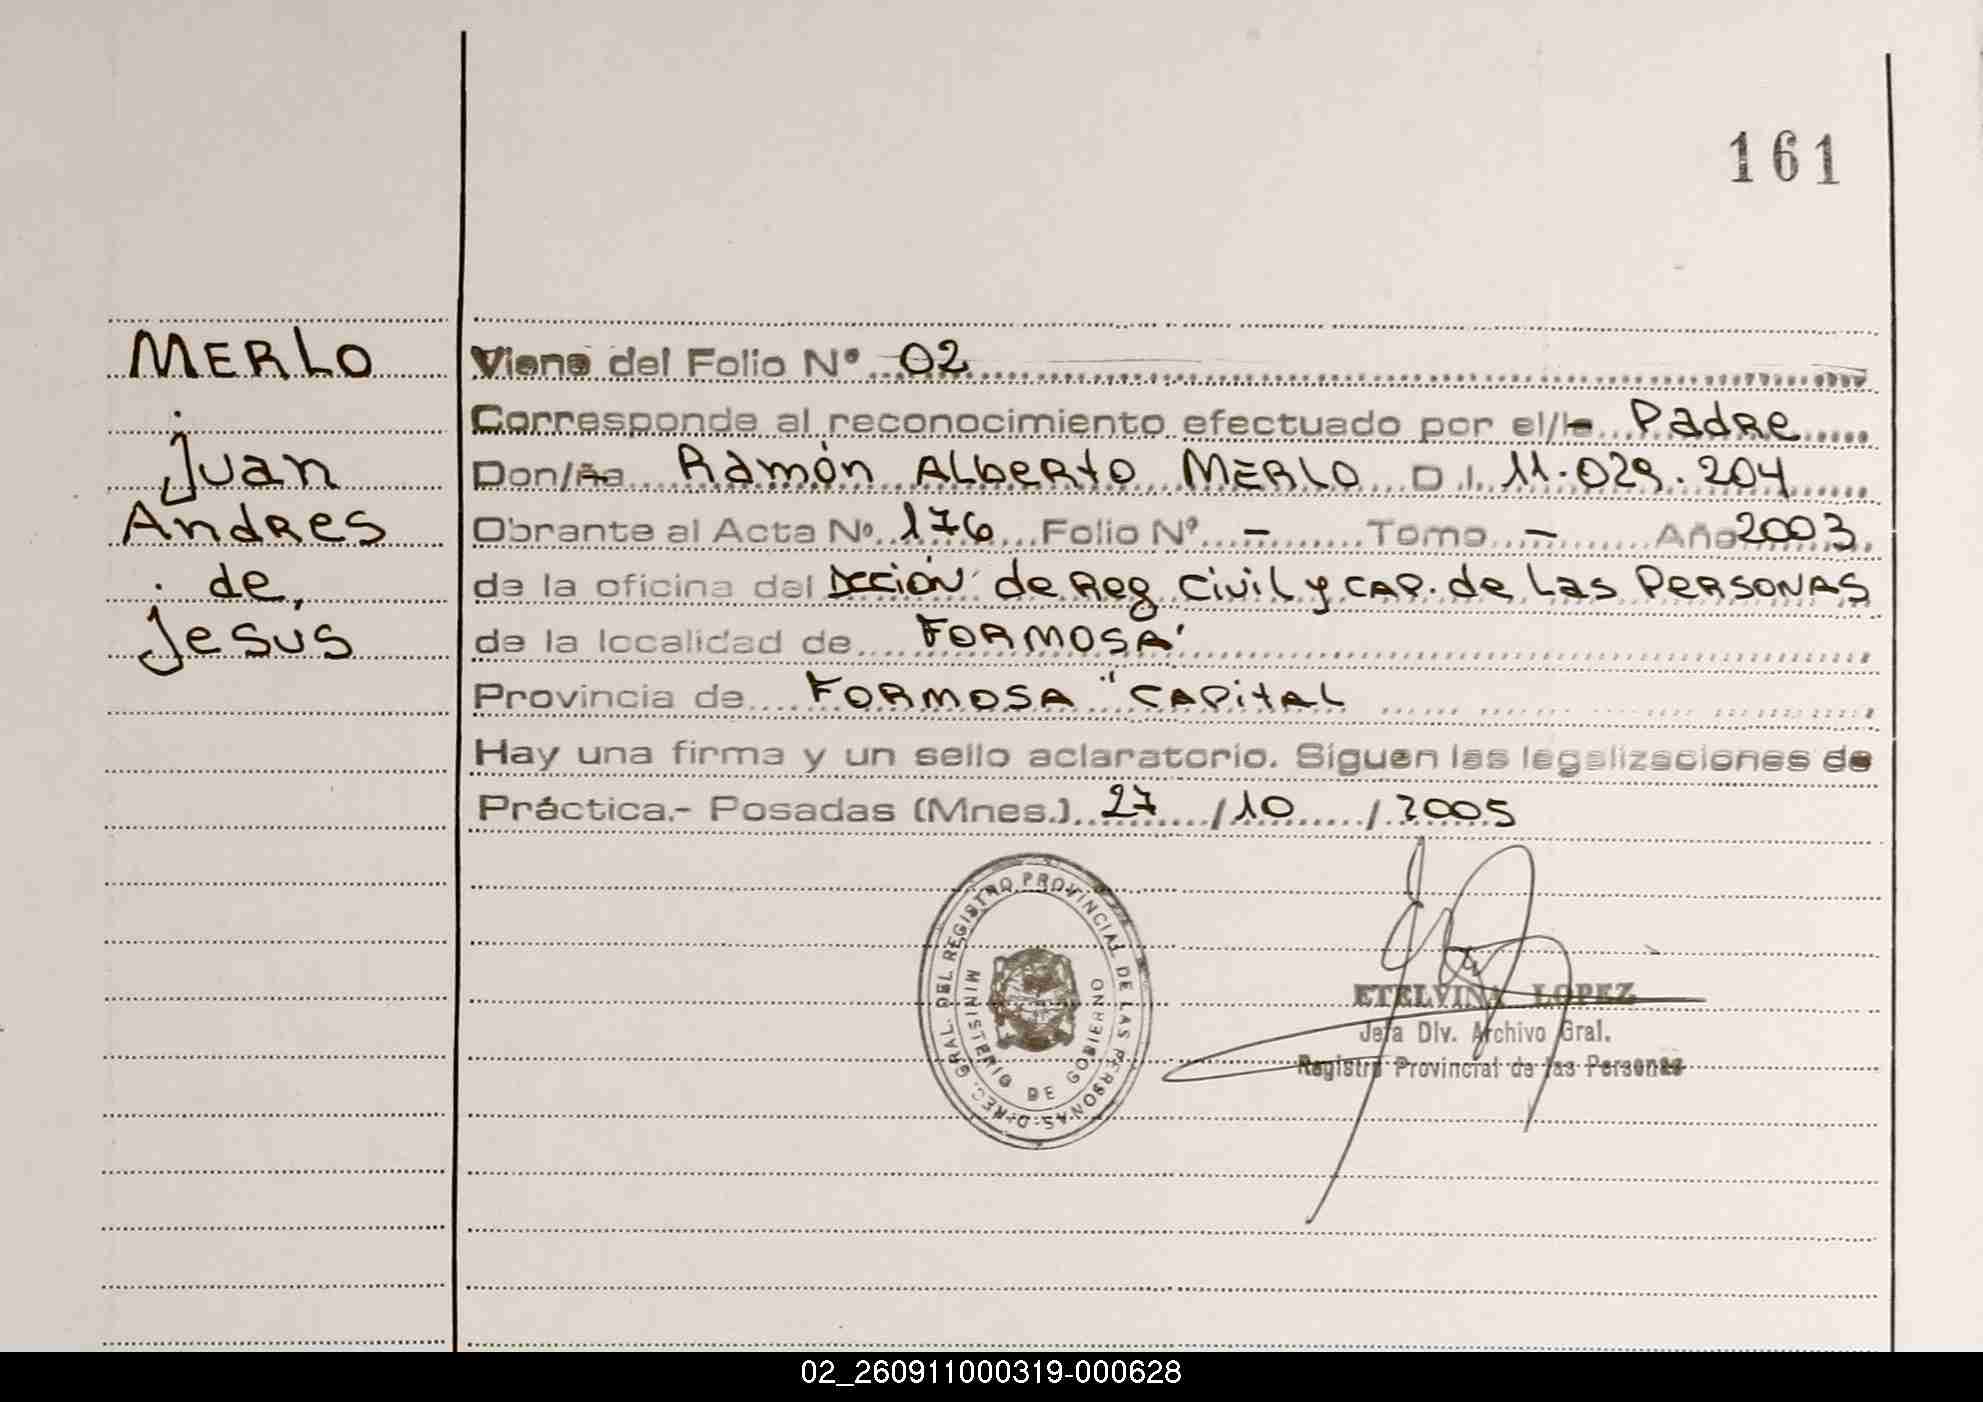 161
MERLO
Juan
Andres
de
Jesus
Viene del Folio Nº 02
Corresponde al reconocimiento efectuado por el/la Padre
Don/ña Ramón Alberto MERLO D.I. 11.029.204
Obrante al Acta Nº 176 Folio Nº - Tomo - Año 2003
de la oficina del Dcción de Reg Civil y CAP. de las Personas
de la localidad de FORMOSA
Provincia de FORMOSA "CAPITAL
Hay una firma y un sello aclaratorio. Siguen las legalizaciones de
Práctica.- Posadas (Mnes.) 27/10/2005
DIREC. GRAL. DEL REGISTRO PROVINCIAL DE LAS PERSONAS
MINISTERIO DE GOBIERNO
ETELVINA LOPEZ
Jefa Div. Archivo Gral.
Registro Provincial de las Personas
02_260911000319-000628